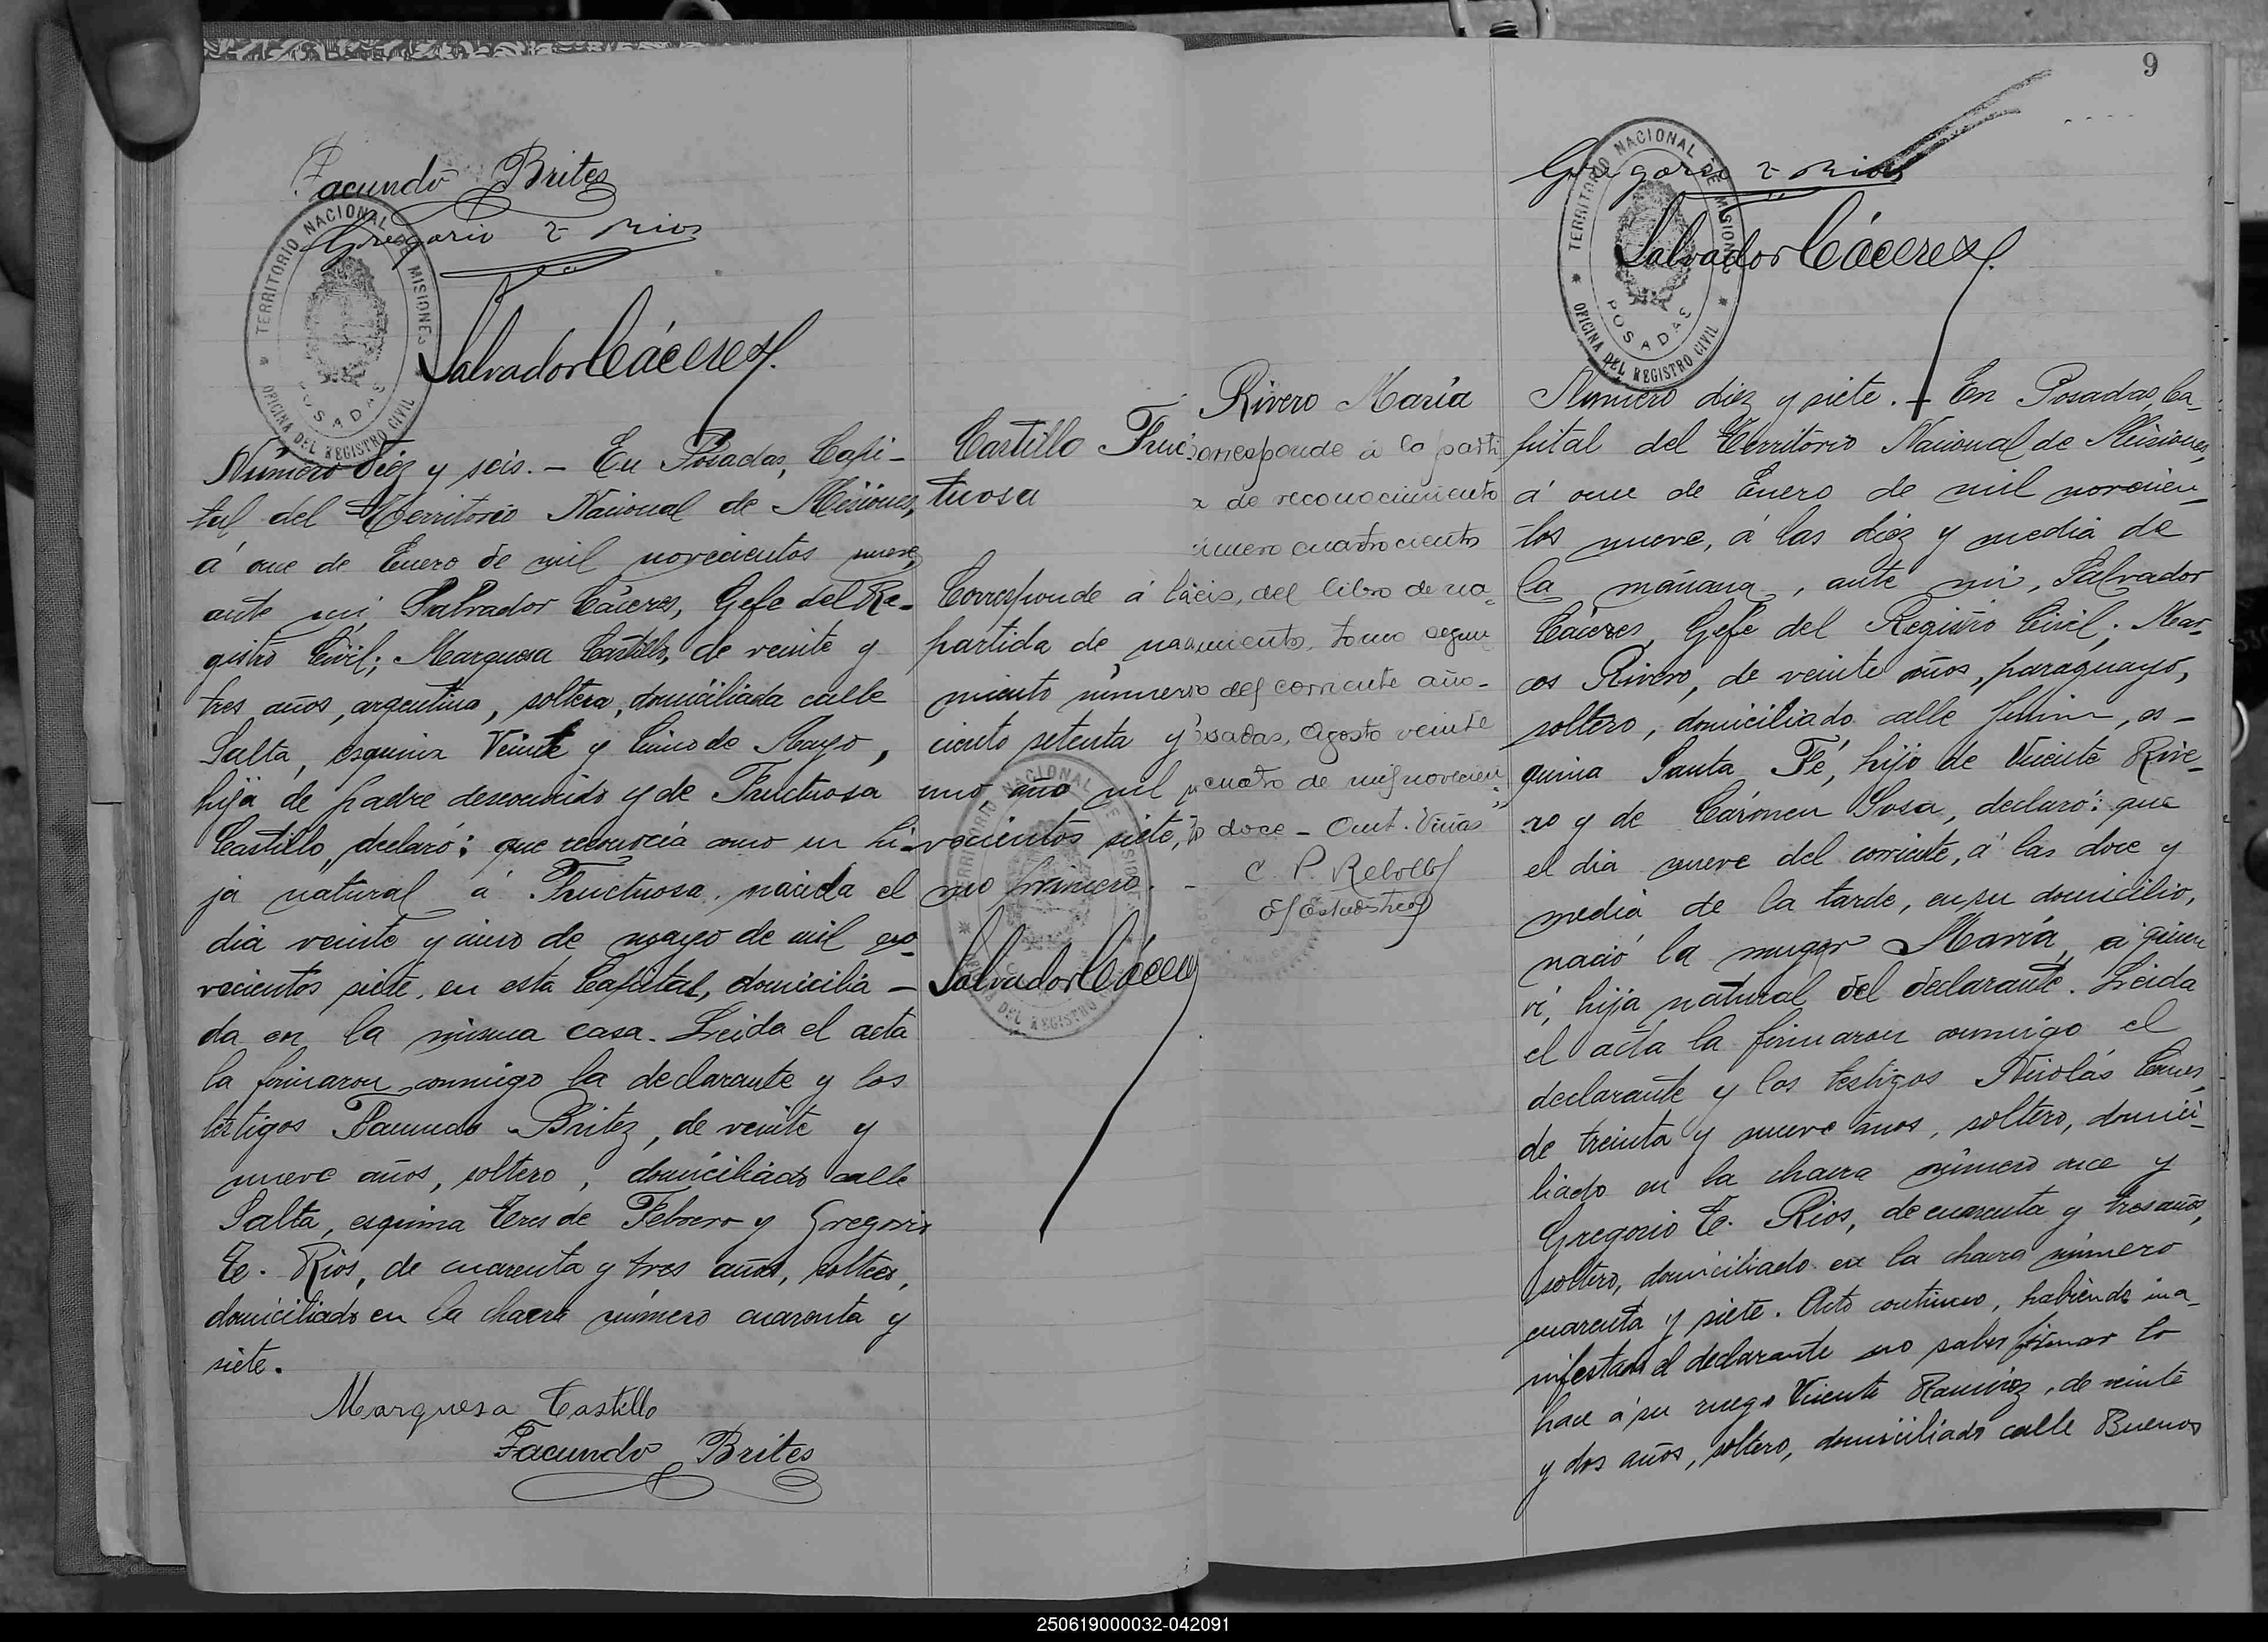 Facundo Brites
Gregorio T Rios
TERRITORIO NACIONAL DE MISIONES
POSADAS
OFICINA DEL REGISTRO CIVIL
Salvador Cáceres
Número diez y seis. - En Posadas, Capi-
tal del Territorio Nacional de Misiones,
á once de Enero de mil novecientos nueve,
ante mi, Salvador Cáceres, Gefe del Re-
gistro Civil; Marquesa Castillo, de veinte y
tres años, argentina, soltera, domiciliada calle
Salta, esquina Veinte y Cinco de Mayo,
hija de padre desconocido y de Fructuosa
Castillo, declaró: que reconocía como su hi-
ja natural á Fructuosa, nacida el
dia veinte y cinco de mayo de mil no-
vecientos siete, en esta Capital, domicilia-
da en la misma casa. Leida el acta
la firmaron conmigo la declarante y los
testigos Facundo Britez, de veinte y
nueve años, soltero, domiciliado calle
Salta, esquina Tres de Febrero y Gregorio
Te. Rios, de cuarenta y tres años, soltero,
domiciliado en la chacra número cuarenta y
siete.
Marquesa Castillo
Facundo Brites
Castillo Fruc
tuosa
Corresponde á la
partida de naci
miento número
ciento setenta y
uno año mil
vecientos siete,
mo primero. -
TERRITORIO NACIONAL DE MISIONES
OFICINA DEL REGISTRO CIVIL
Salvador Cáceres
Rivero María
orresponde á la parti
a de reconocimiento
úmero cuatrocientos
eis, del libro de na-
cimiento, tomo segun
del corriente año-
osadas, Agosto veinte
cuatro de mil novecien
os doce -
C. P. Rebollo
9
Gregorio T Rios
TERRITORIO NACIONAL DE MISIONES
POSADAS
OFICINA DEL REGISTRO CIVIL
Salvador Cáceres
Número diez y siete. - En Posadas, Ca-
pital del Territorio Nacional de Misiones,
á once de Enero de mil novecien-
tos nueve, á las diez y media de
la mañana, ante mi, Salvador
Cáceres, Gefe del Registro Civil; Mar-
cos Rivero, de veinte años, paraguayo,
soltero, domiciliado calle Junin, es-
quina Santa Fé, hijo de Vicente Rive-
ro y de Cármen Sosa, declaró: que
el dia nueve del corriente, á las doce y
media de la tarde, en su domicilio,
nació la muger María, a quien
vi, hija natural del declarante. Leida
el acta la firmaron conmigo el
declarante y los testigos Nicolás
de treinta y nueve años, soltero, domici-
liado en la chacra número once y
Gregorio Te. Rios, de cuarenta y tres años,
soltero, domiciliado en la chacra número
cuarenta y siete. Acto continuo, habiendo ma-
nifestado el declarante no saber firmar lo
hace á su ruego Vicente Ramirez, de veinte
y dos años, soltero, domiciliado calle Buenos
250619000032-042091